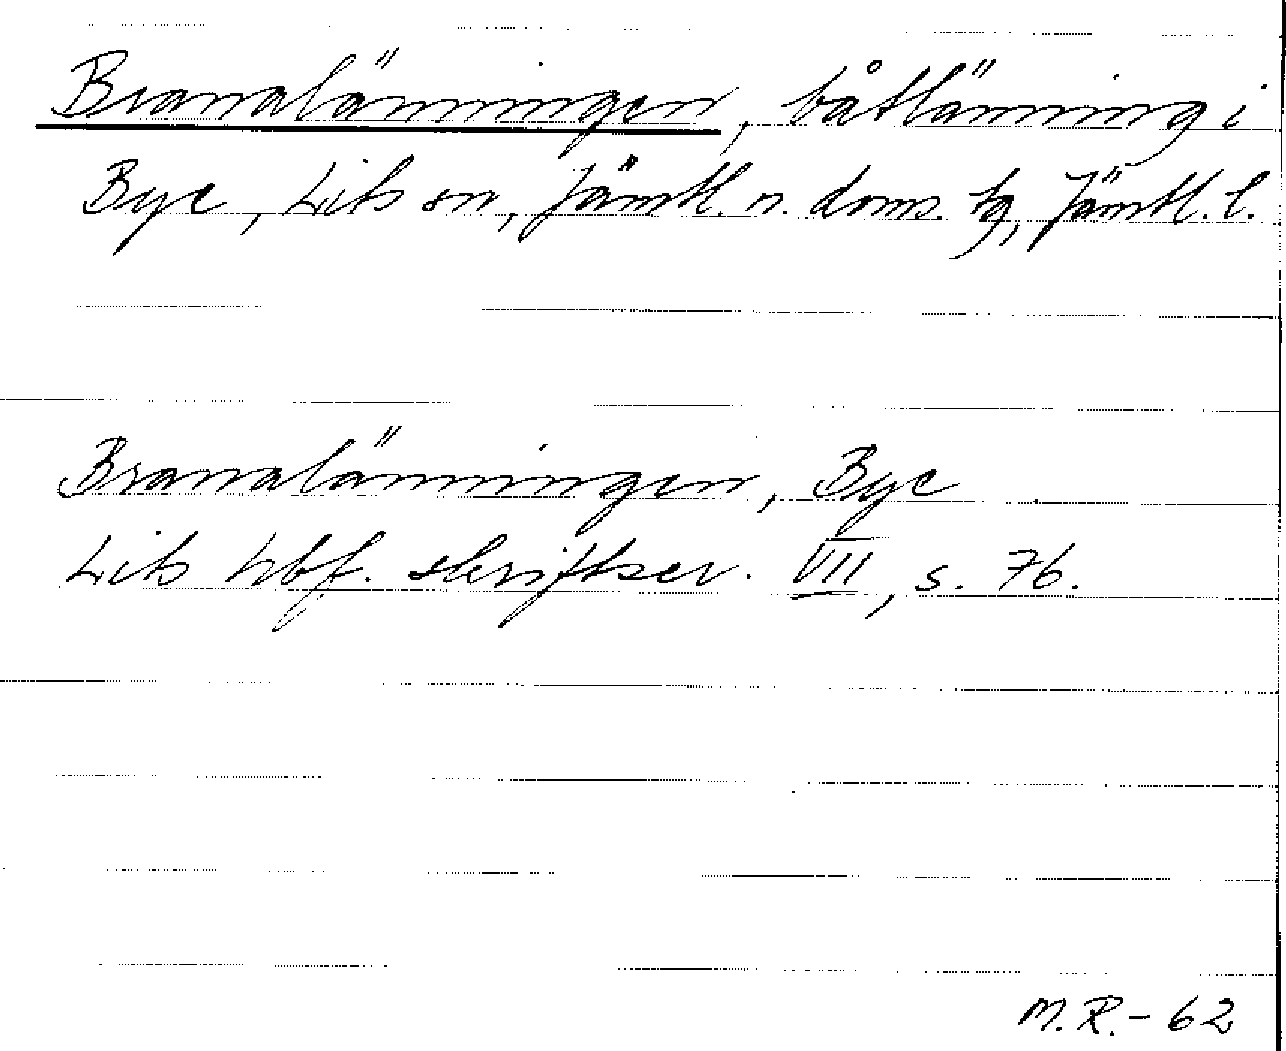 Branalänningen, båtlänning i
Bye, Lits sn, Jämtl. n. doms. tg, Jämtl. l.
Branalänningen, Bye
Lits hbf. skriftser. VII, s. 76.
M.R.-62